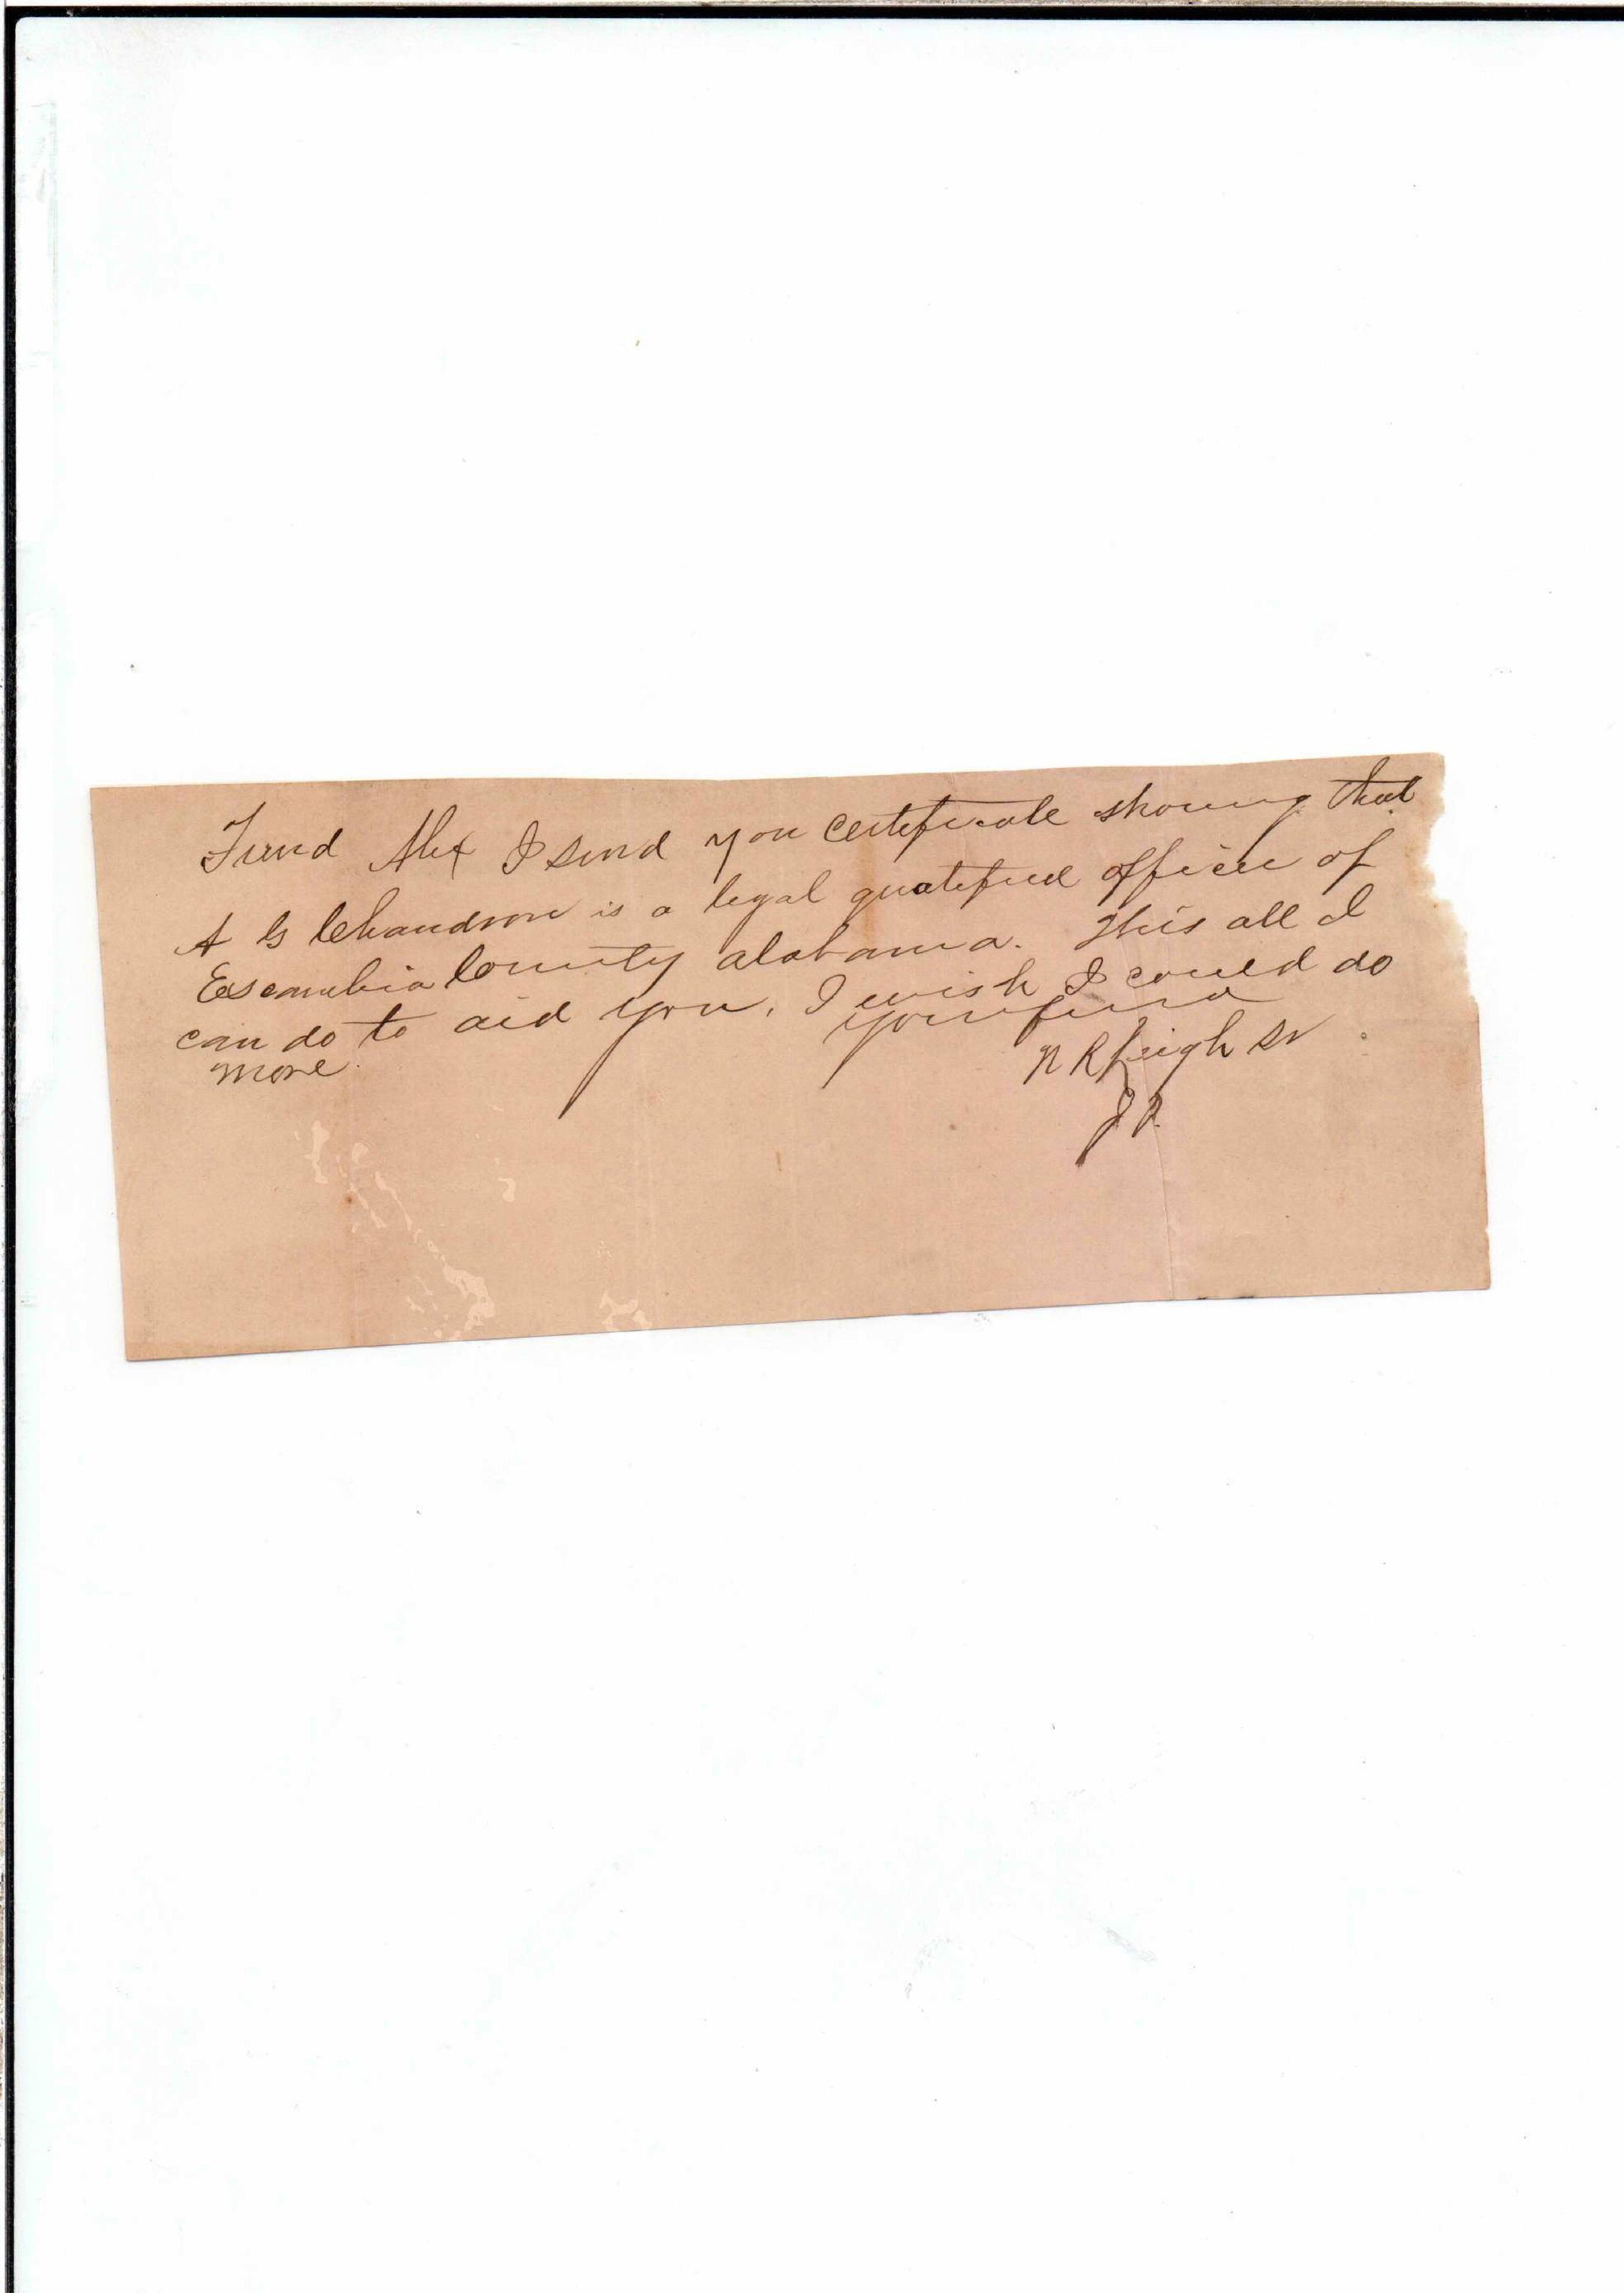 Friend Alex I send you certificate showing that
A G is a legal qualified officer of
Escambia County Alabama. This all I
can do to aid you, I wish I could do
more.
your friend
N R Leigh Sr
J P.